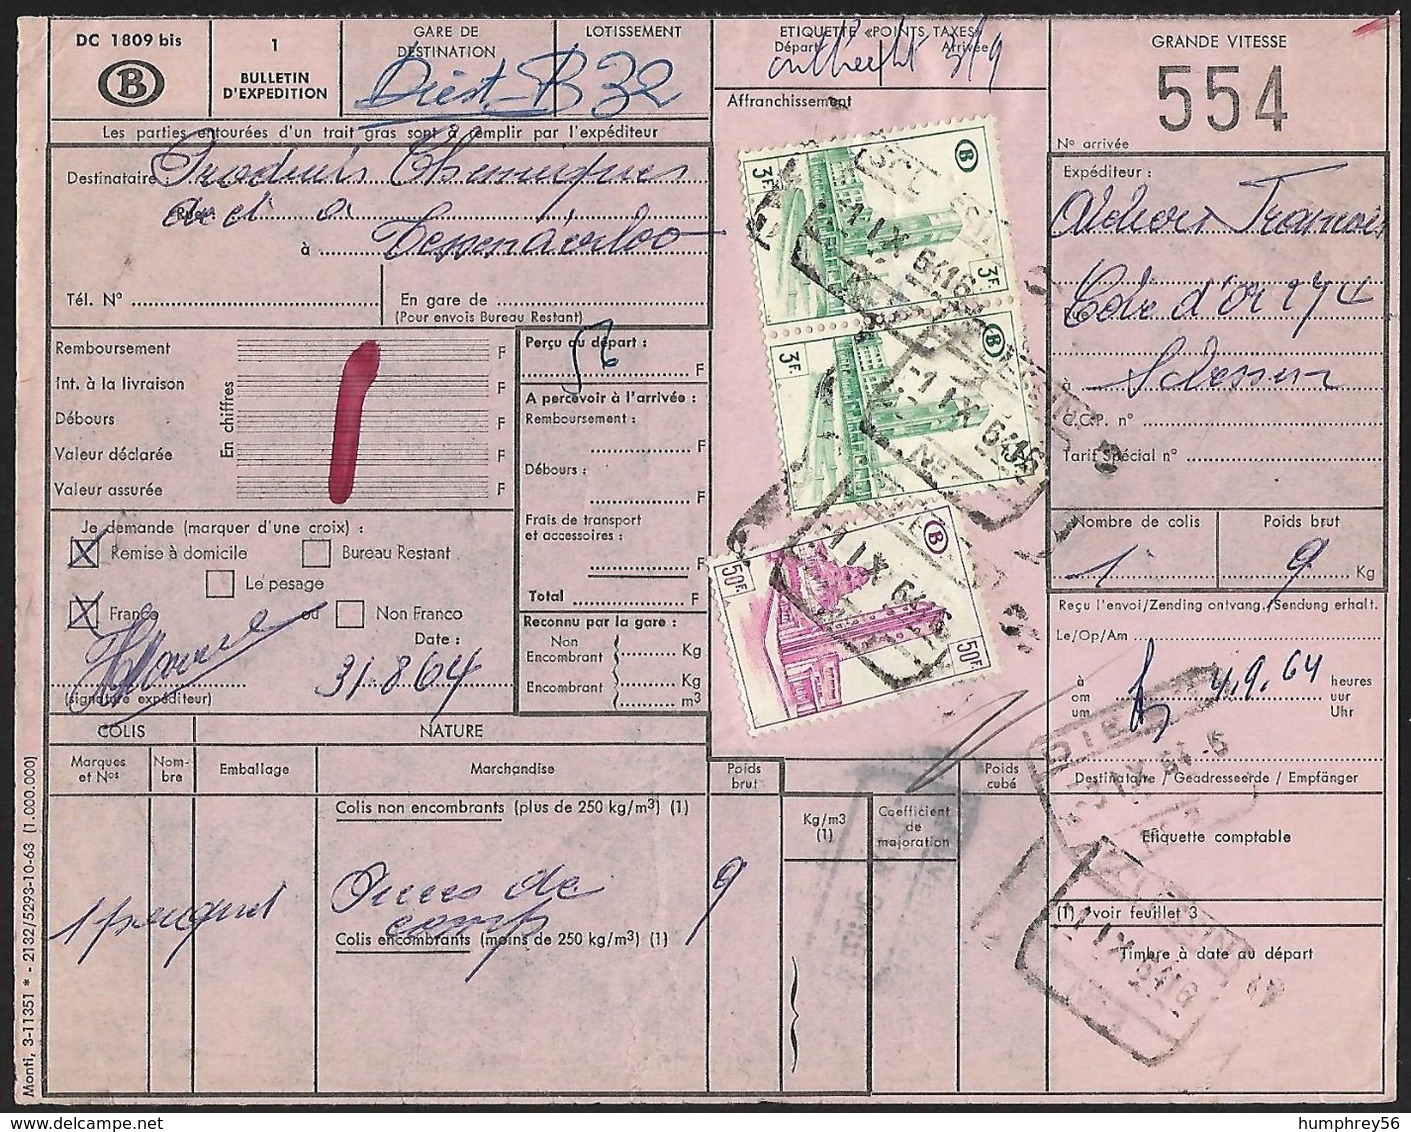 DC 1809 bis
B
1
BULLETIN
D'EXPEDITION
GARE DE
DESTINATION
Diest B 32
LOTISSEMENT
ETIQUETTE «POINTS TAXES»
Départ Arrivée
3/9
GRANDE VITESSE
554
N° arrivée
Les parties entourées d'un trait gras sont à remplir par l'expéditeur
Affranchissement
Destinataire : Produits Chemiques
Rue :
à Tessenderloo
Tél. N°
En gare de
(Pour envois Bureau Restant)
Expéditeur :
Côte d'Or 274
à
C.C.P. n°
Tarif Spécial n°
Nombre de colis
1
Poids brut
9 Kg
Remboursement F
Int. à la livraison F
Débours F
Valeur déclarée F
Valeur assurée F
En chiffres
Perçu au départ :
56
F
A percevoir à l'arrivée :
Remboursement :
F
Débours :
F
Frais de transport
et accessoires :
F
Total F
Reconnu par la gare :
Non
Encombrant
Kg
Encombrant
Kg
m3
Je demande (marquer d'une croix) :
Remise à domicile
Bureau Restant
Le pesage
Franco ou Non Franco
Date :
31.8.64
(signature expéditeur)
B
3F
3F
B
3F
3F
B
50F
50F
-1 IX 64 16
-1 IX 64 16
-1 IX 64 16
Reçu l'envoi/Zending ontvang./Sendung erhalt.
Le/Op/Am
4.9.64
à
om
um
heures
uur
Uhr
DIEST
-3 IX 64 -5
Destinataire / Geadresseerde / Empfänger
Etiquette comptable
(1) voir feuillet 3
Timbre à date au départ
-1 IX 64 16
COLIS
NATURE
Marques
et Nos
Nom-
bre
Emballage
Marchandise
Poids
brut
Poids
cubé
Kg/m3
(1)
Coefficient
de
majoration
Colis non encombrants (plus de 250 kg/m3) (1)
1 paquet
de
9
Colis encombrants (moins de 250 kg/m3) (1)
Monti, 3-11351 * - 2132/5293-10-63 (1.000.000)
humphrey56